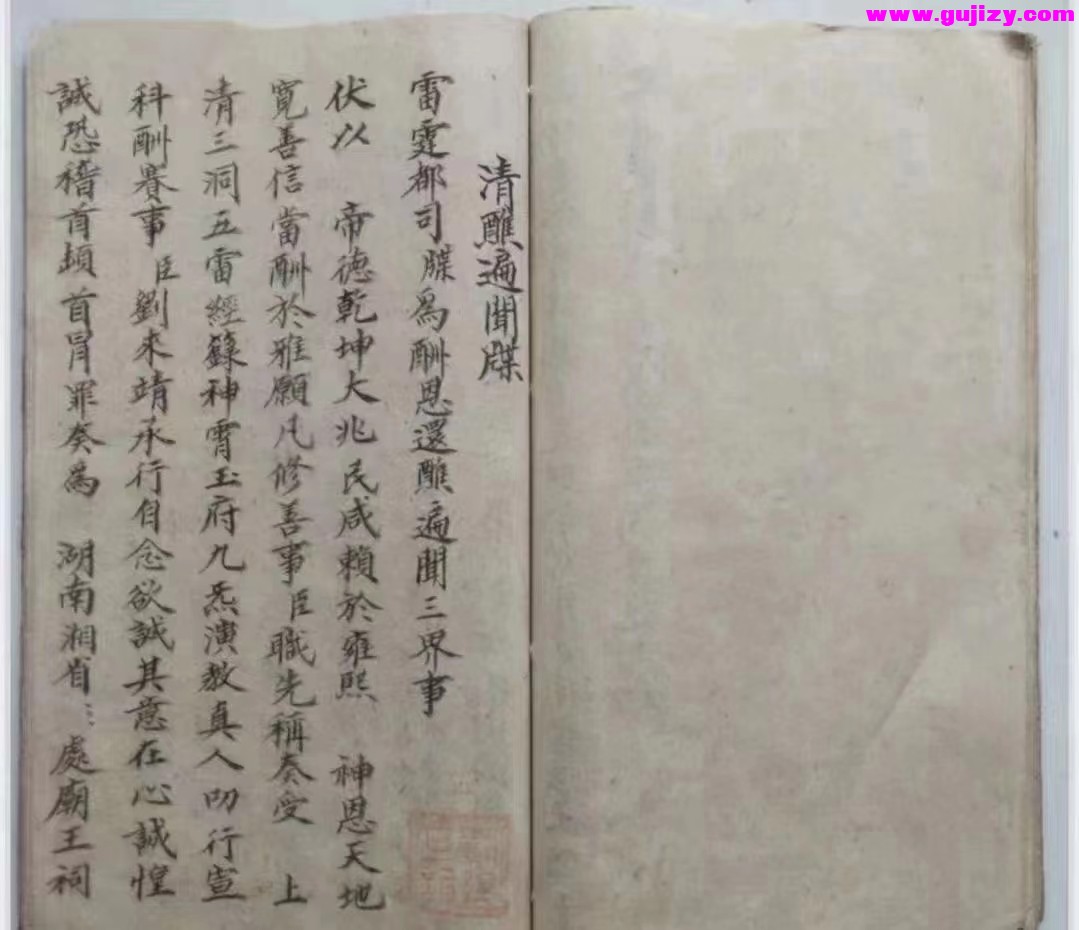 www.gujizy.com
清醮遍聞牒
雷霆都司 牒為酬恩還醮遍聞三界事
伏以 帝德乾坤大兆民咸賴於雍熙 神恩天地
寬善信當酬於雅願凡修善事臣職先稱奏受 上
清三洞五雷經籙神霄玉府九炁演教真人叨行宣
科酬賽事臣劉來靖承行自念欲誠其意在心誠惶
誠恐稽首頓首冒罪奏為 湖南湘省⋮處廟王祠